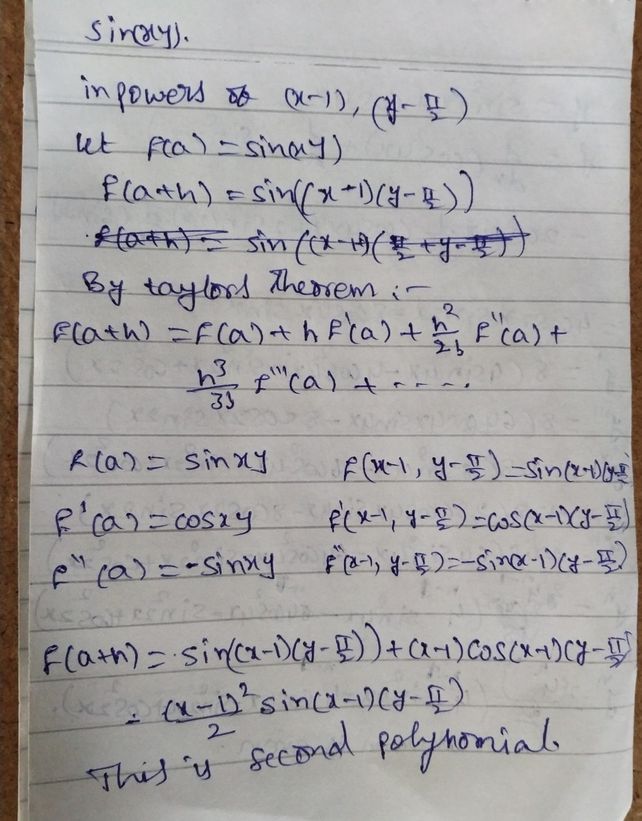 sin(xy).
in powers of (x-1), (y-π/2)
let f(a) = sin(xy)
f(a+h) = sin((x-1)(y-π/2))
f(a+h) = sin((x-1)(π/2+y-π/2))
By taylors Theorem :-
f(a+h) = f(a) + h f'(a) + h²/2! f''(a) +
h³/3! f'''(a) + - - - -
f(a) = sinxy f(x-1, y-π/2) = sin(x-1)(y-π/2)
f'(a) = cosxy f'(x-1, y-π/2) = cos(x-1)(y-π/2)
f''(a) = -sinxy f''(x-1, y-π/2) = -sin(x-1)(y-π/2)
f(a+h) = sin((x-1)(y-π/2)) + (x-1) cos(x-1)(y-π/2)
- (x-1)²/2 sin(x-1)(y-π/2)
This is second polynomial.